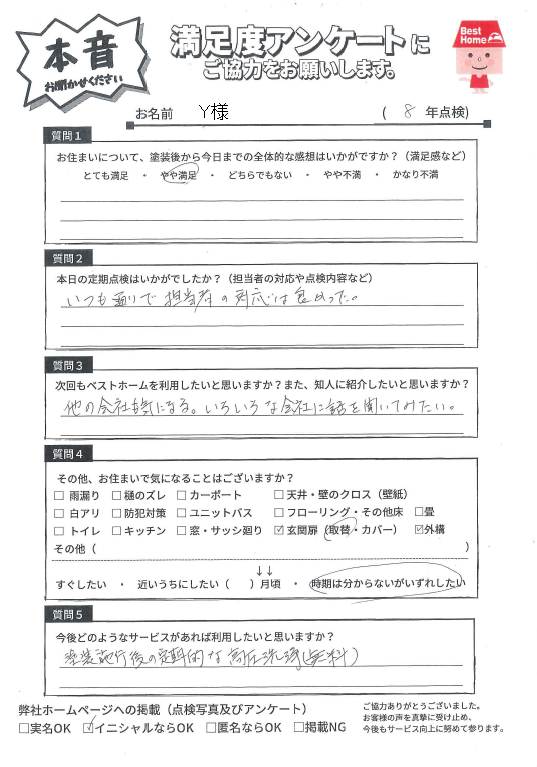 本音
お聞かせください
満足度アンケートに
ご協力をお願いします。
Best Home
お名前 Y様 ( 8 年点検)
質問1
お住まいについて、塗装後から今日までの全体的な感想はいかがですか？（満足感など）
とても満足 ・ やや満足 ・ どちらでもない ・ やや不満 ・ かなり不満
質問2
本日の定期点検はいかがでしたか？（担当者の対応や点検内容など）
いつも通りで担当者の対応は良かった。
質問3
次回もベストホームを利用したいと思いますか？また、知人に紹介したいと思いますか？
他の会社も気になる。いろいろな会社に話を聞いてみたい。
質問4
その他、お住まいで気になることはございますか？
□ 雨漏り □ 樋のズレ □ カーポート □ 天井・壁のクロス（壁紙）
□ 白アリ □ 防犯対策 □ ユニットバス □ フローリング・その他床 □畳
□ トイレ □ キッチン □ 窓・サッシ廻り ☑ 玄関扉（取替・カバー） ☑外構
その他（ ）
↓↓
すぐしたい ・ 近いうちにしたい（ ）月頃 ・ 時期は分からないがいずれしたい
質問5
今後どのようなサービスがあれば利用したいと思いますか？
塗装施行後の定期的な高圧洗浄(無料)
弊社ホームページへの掲載（点検写真及びアンケート）
□実名OK ☑イニシャルならOK □匿名ならOK □掲載NG
ご協力ありがとうございました。
お客様の声を真摯に受け止め、
今後もサービス向上に努めて参ります。